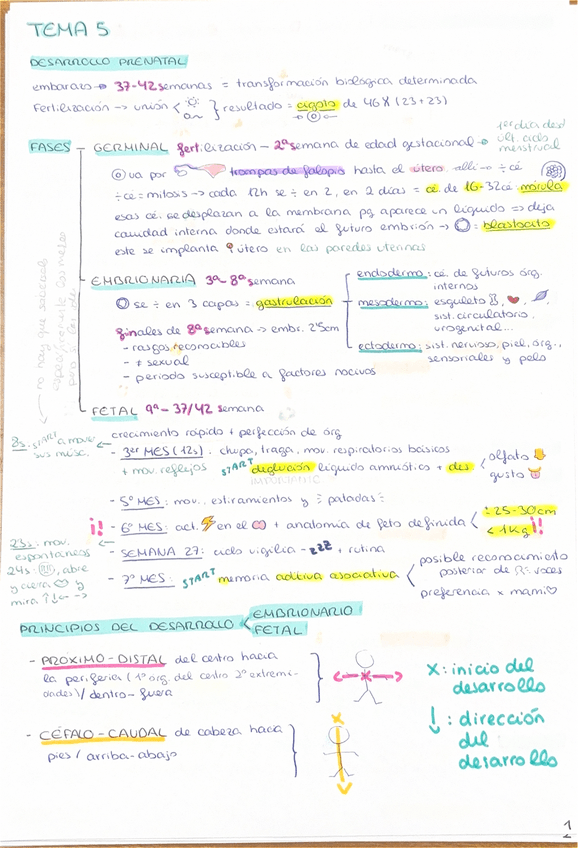 TEMA 5
DESARROLLO PRENATAL
embarazo → 37-42 semanas = transformación biológica determinada
Fertilización → unión < } resultado = cigoto de 46X (23+23)
1er día del
últ. ciclo
menstrual
FASES
GERMINAL fertilización - 2ª semana de edad gestacional →
va por 5 trompas de falopio hasta el útero. alli → ÷ cé
÷ cé = mitosis → cada 12h se ÷ en 2, en 2 días = cé. de 16-32cé: mórula
esas cé. se desplazan a la membrana pq aparece un líquido => deja
cavidad interna donde estará el futuro embrión → : blastocito
este se implanta útero en las paredes uterinas
EMBRIONARIA 3ª-8ª semana
se ÷ en 3 capas = gastrulación
endodermo: cé. de futuros órg.
internos
mesodermo: esqueleto, ❤, 
sist. circulatorio,
urogenital...
ectodermo: sist. nervioso, piel, órg.,
sensoriales y pelo
finales de 8ª semana → embr. 2'5cm
- rasgos reconocibles
- ≠ sexual
- periodo susceptible a factores nocivos
no hay que saberse
específicamente los meses
FETAL 9ª - 37/42 semana
crecimiento rápido + perfección de órg
8s. START a mover
sus músc.
- 3er MES (12s): chupa, traga, mov. respiratorios básicos
+ mov. reflejos START deglución líquido amniótico + des
olfato
gusto
IMPORTANTE
- 5º MES: mov., estiramientos y patadas
¡! - 6º MES: act. ⚡ en el + anatomía de feto definida < ± 25-30cm
< 1Kg !!
23s: mov.
espontáneos
24s: , abre
y cierra y
mira ↑↓← →
- SEMANA 27: ciclo vigilia - zzz + rutina
- 7º MES: START memoria auditiva asociativa
posible reconocimiento
posterior de voces
preferencia x mami ♡
PRINCIPIOS DEL DESARROLLO < EMBRIONARIO
FETAL
- PRÓXIMO-DISTAL del centro hacia
la periferia (1º org. del centro 2º extremi-
dades) / dentro-fuera
- CÉFALO-CAUDAL de cabeza hacia
pies / arriba-abajo
X: inicio del
desarrollo
↓: dirección
del
desarrollo
1